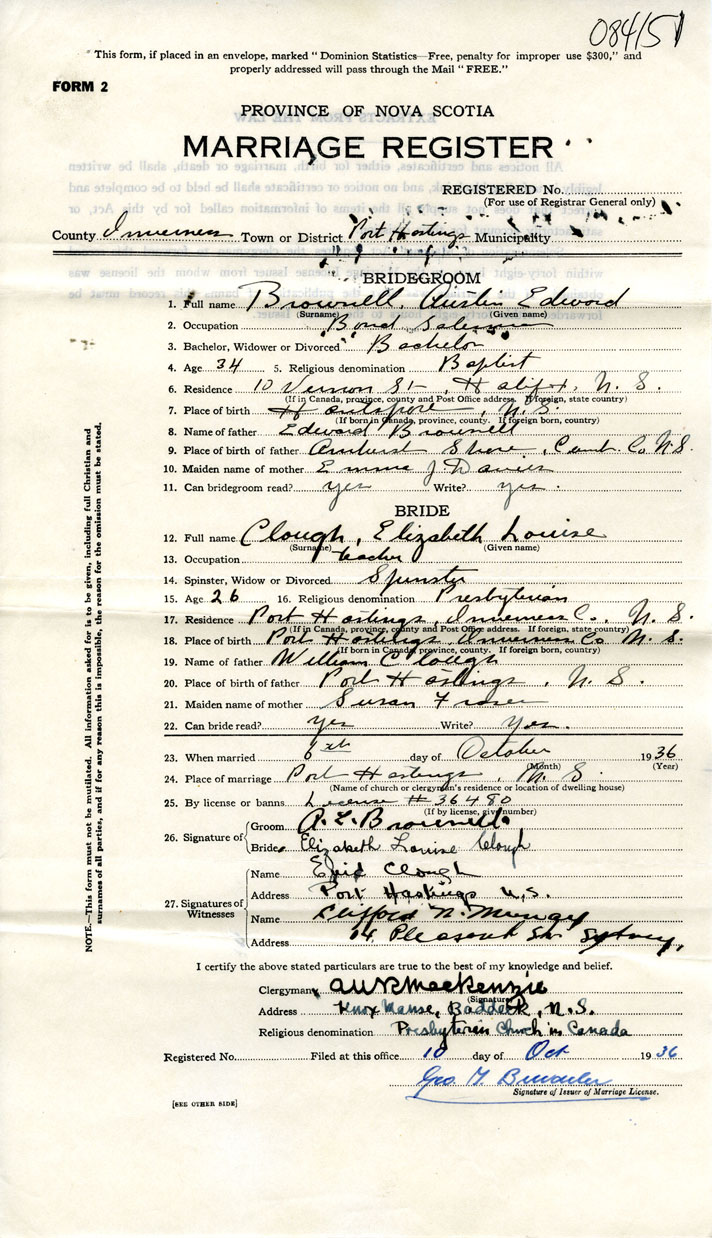 08415
"This form, if placed in an envelope, marked "Dominion Statistics—Free, penalty for improper use $300," and
properly addressed will pass through the Mail "FREE."
FORM 2
PROVINCE OF NOVA SCOTIA
MARRIAGE REGISTER
REGISTERED No.
(For use of Registrar General only)
County Inverness Town or District Port Hastings Municipality
BRIDEGROOM
1. Full name Brownell, Austin Edward
(Surname) (Given name)
2. Occupation Bond Salesman
3. Bachelor, Widower or Divorced Bachelor
4. Age 34 5. Religious denomination Baptist
6. Residence 10 Vernon St, Halifax, N. S.
(If in Canada, province, county and Post Office address. If foreign, state country)
7. Place of birth Hantsport, N. S.
(If born in Canada, province, county. If foreign born, country)
8. Name of father Edward Brownell
9. Place of birth of father Amherst Shore, Cumb. Co N.S.
10. Maiden name of mother Emma J Davies
11. Can bridegroom read? yes Write? yes.
BRIDE
12. Full name Clough, Elizabeth Louise
(Surname) (Given name)
13. Occupation teacher
14. Spinster, Widow or Divorced Spinster
15. Age 26 16. Religious denomination Presbyterian
17. Residence Port Hastings, Inverness Co., N. S.
(If in Canada, province, county and Post Office address. If foreign, state country)
18. Place of birth Port Hastings Inverness Co N. S.
(If born in Canada, province, county. If foreign born, country)
19. Name of father William Clough
20. Place of birth of father Port Hastings, N. S.
21. Maiden name of mother Susan Fraser
22. Can bride read? yes Write? Yes.
23. When married 6th day of October 1936
(Month) (Year)
24. Place of marriage Port Hastings, N. S.
(Name of church or clergyman's residence or location of dwelling house)
25. By license or banns License # 36480
(If by license, give number)
26. Signature of Groom A. E. Brownell
Bride Elizabeth Louise Clough
27. Signatures of Witnesses
Name Clough
Address Port Hastings N.S.
Name Clifford N. Murray
Address 14 Pleasant St. Sydney,
I certify the above stated particulars are true to the best of my knowledge and belief.
Clergyman MacKenzie
(Signature)
Address Knox Manse, Baddeck, N.S.
Religious denomination Presbyterian Church in Canada
Registered No. Filed at this office 10 day of Oct 1936
Geo.
Signature of Issuer of Marriage License.
[SEE OTHER SIDE]
NOTE.—This form must not be mutilated. All information asked for is to be given, including full Christian and
surnames of all parties, and if for any reason this is impossible, the reason for the omission must be stated.